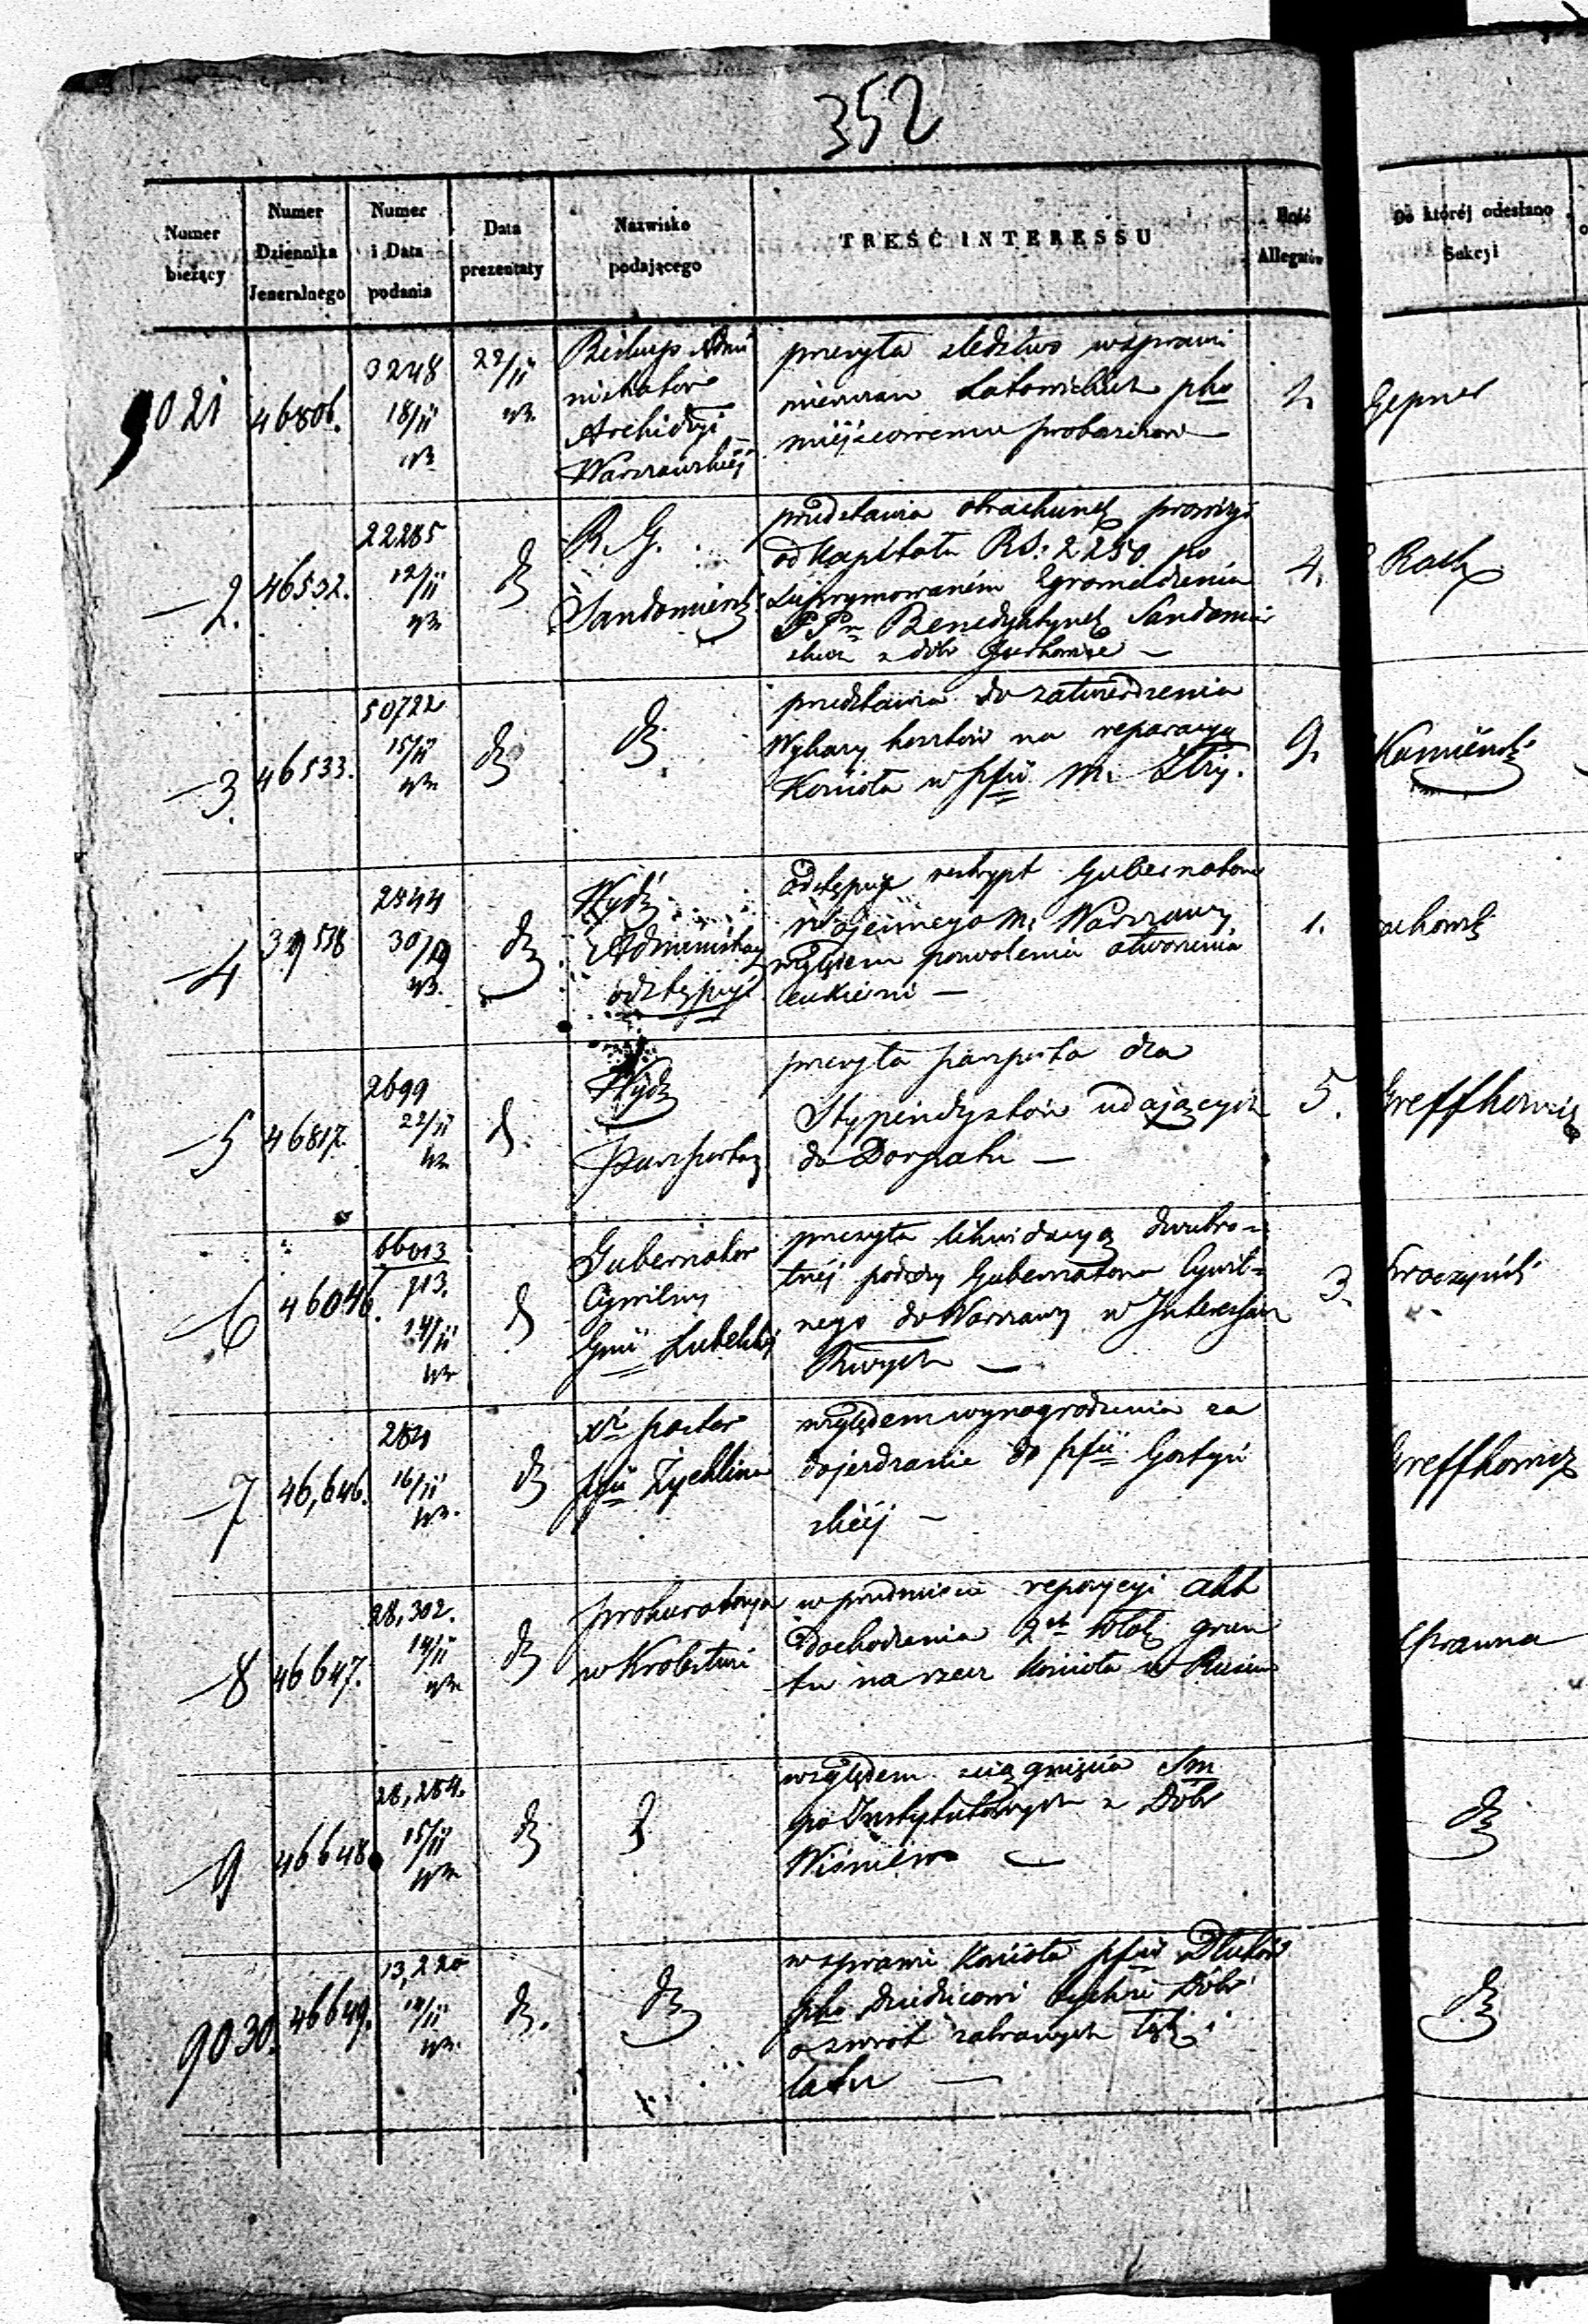 352
Numer bieżący
Numer Dziennika Jeneralnego
Numer i Data podania
Data prezentaty
Nazwisko podającego
TREŚĆ INTERESSU
Ilość Allegatów
Do któréj odesłano Sekcyi
9021
46806.
3248
18/11
22/11
Biskup Admi
nistrator
Archidyi
Warszawskiéj
przesyła śledztwo w sprawie
mieszczan Latowickich pko
miéjscowemu proboszczowi —
2.
Gepner
2.
46532.
22285
12/11
R. G.
Sandomiersk
przedstawia obrachunek prowizyi
od Kapitału RS: 2250 po
suprymowaném Zgromadzeniu
PPn Benedyktynek Sandomir
skich z dóbr
4.
Rack
3.
46533.
50722
15/11
przedstawia do zatwierdzenia
Wykazy kosztów na reparacyą
Kościoła w pfii M.
9.
Kamiénski
4
39538
2844
30/9
Wydź
Administracy
odstępuje
odstępuje reskrypt Gubernatora
Wojennego M. Warszawy
względem pozwolenia otworzenia
cukierni —
1.
5
46817.
2699
22/11
Wydz
Paszportowy
przesyła paszporta dla
Stypendystów udających
do Dorpatu —
5.
Greffkowicz
6
46046.
66013
713.
14/11
Gubernator
Cywilny
Gnii Lubelskiej
przesyła likwidacyą dwukro-
tnéj podróży Gubernatora Cywil-
nego do Warszawy w Interessach
—
3.
7
46,646.
284
16/11
Xdz pastor
pfii Żychlina
względem wynagrodzenia za
dojeżdzanie do pfii Gostyń
skiéj —
Greffkowicz
8
46647.
28,302.
14/11
Prokuratorya
w Królestwie
w przedmiocie repozycyi akt
dochodzenia 2ch włók grun
tu na rzecz Kościoła w
9
46648
28,284.
15/11
względem ściągnięcia Sm
po Instytutowych z Dóbr
Wiśniew —
9030.
46649.
13,220
14/11
w sprawie Kościoła pfii
pko dziedzicowi Dóbr
o zwrot zabranych łąk i
lasu —